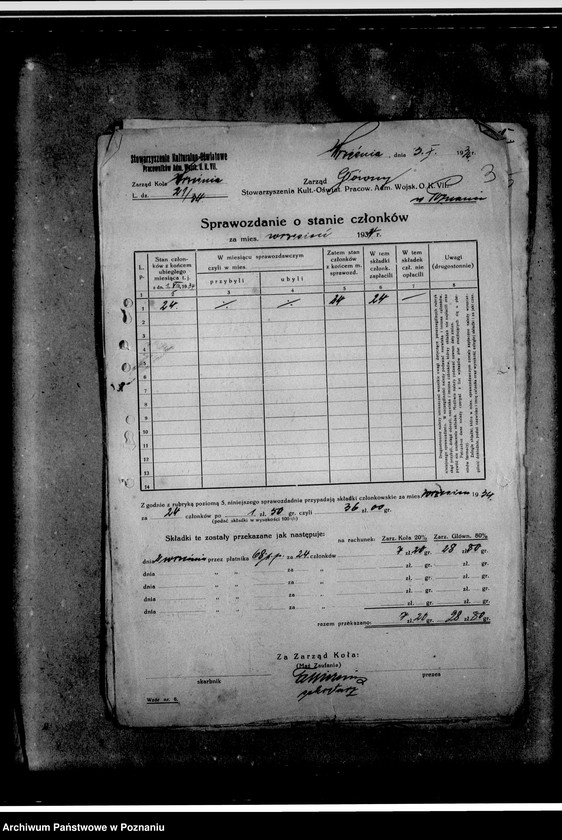 Stowarzyszenie Kulturalno-Oświatowe
Pracowników Adm. Wojsk. O. K. VII.
Września, dnia 3. X. 193
Zarząd Koła Września
L. dz. 21/34
Zarząd Główny
Stowarzyszenia Kult.-Oświat. Pracow. Adm. Wojsk. O. K. VII.
w Poznaniu
35
Sprawozdanie o stanie członków
za mies. wrzesień 1934 r.
L. P.
Stan członków z końcem ubiegłego miesiąca t. j. z dn.
W miesiącu sprawozdawczym czyli w mies.
przybyli
ubyli
Zatem stan członków z końcem m. sprawozd.
W tem składki członk. zapłacili
W tem składek czł. nie opłacili
Uwagi (drugostronnie)
2 3 4 5 6 8
1 24. ·/· ·/· 24 24 —
2
3
4
5
6
7
8
9
10
11
12
13
14
Z godnie z rubryką poziomą 5, niniejszego sprawozdania przypadają składki członkowskie za mies. wrzesień 1934.
za 24 członków po 1 zł. 50 gr. czyli 36 zł. 00 gr.
(podać składki w wysokości 100%)
Składki te zostały przekazane jak następuje: na rachunek: Zarz. Koła 20% Zarz. Główn. 80%
dnia 2 września przez płatnika 68 p.p. za 24 członków 7 zł. 20 gr. 28 zł. 80 gr.
dnia „ „ za „ zł. gr. zł. gr.
dnia „ „ za „ zł. gr. zł. gr.
dnia „ „ za „ zł. gr. zł. gr.
dnia „ „ za „ zł. gr. zł. gr.
razem przekazano: 7 zł. 20 gr. 28 zł. 80 gr.
Za Zarząd Koła:
(Mąż Zaufania)
skarbnik
sekretarz
prezes
Wzór nr. 6.
Archiwum Państwowe w Poznaniu